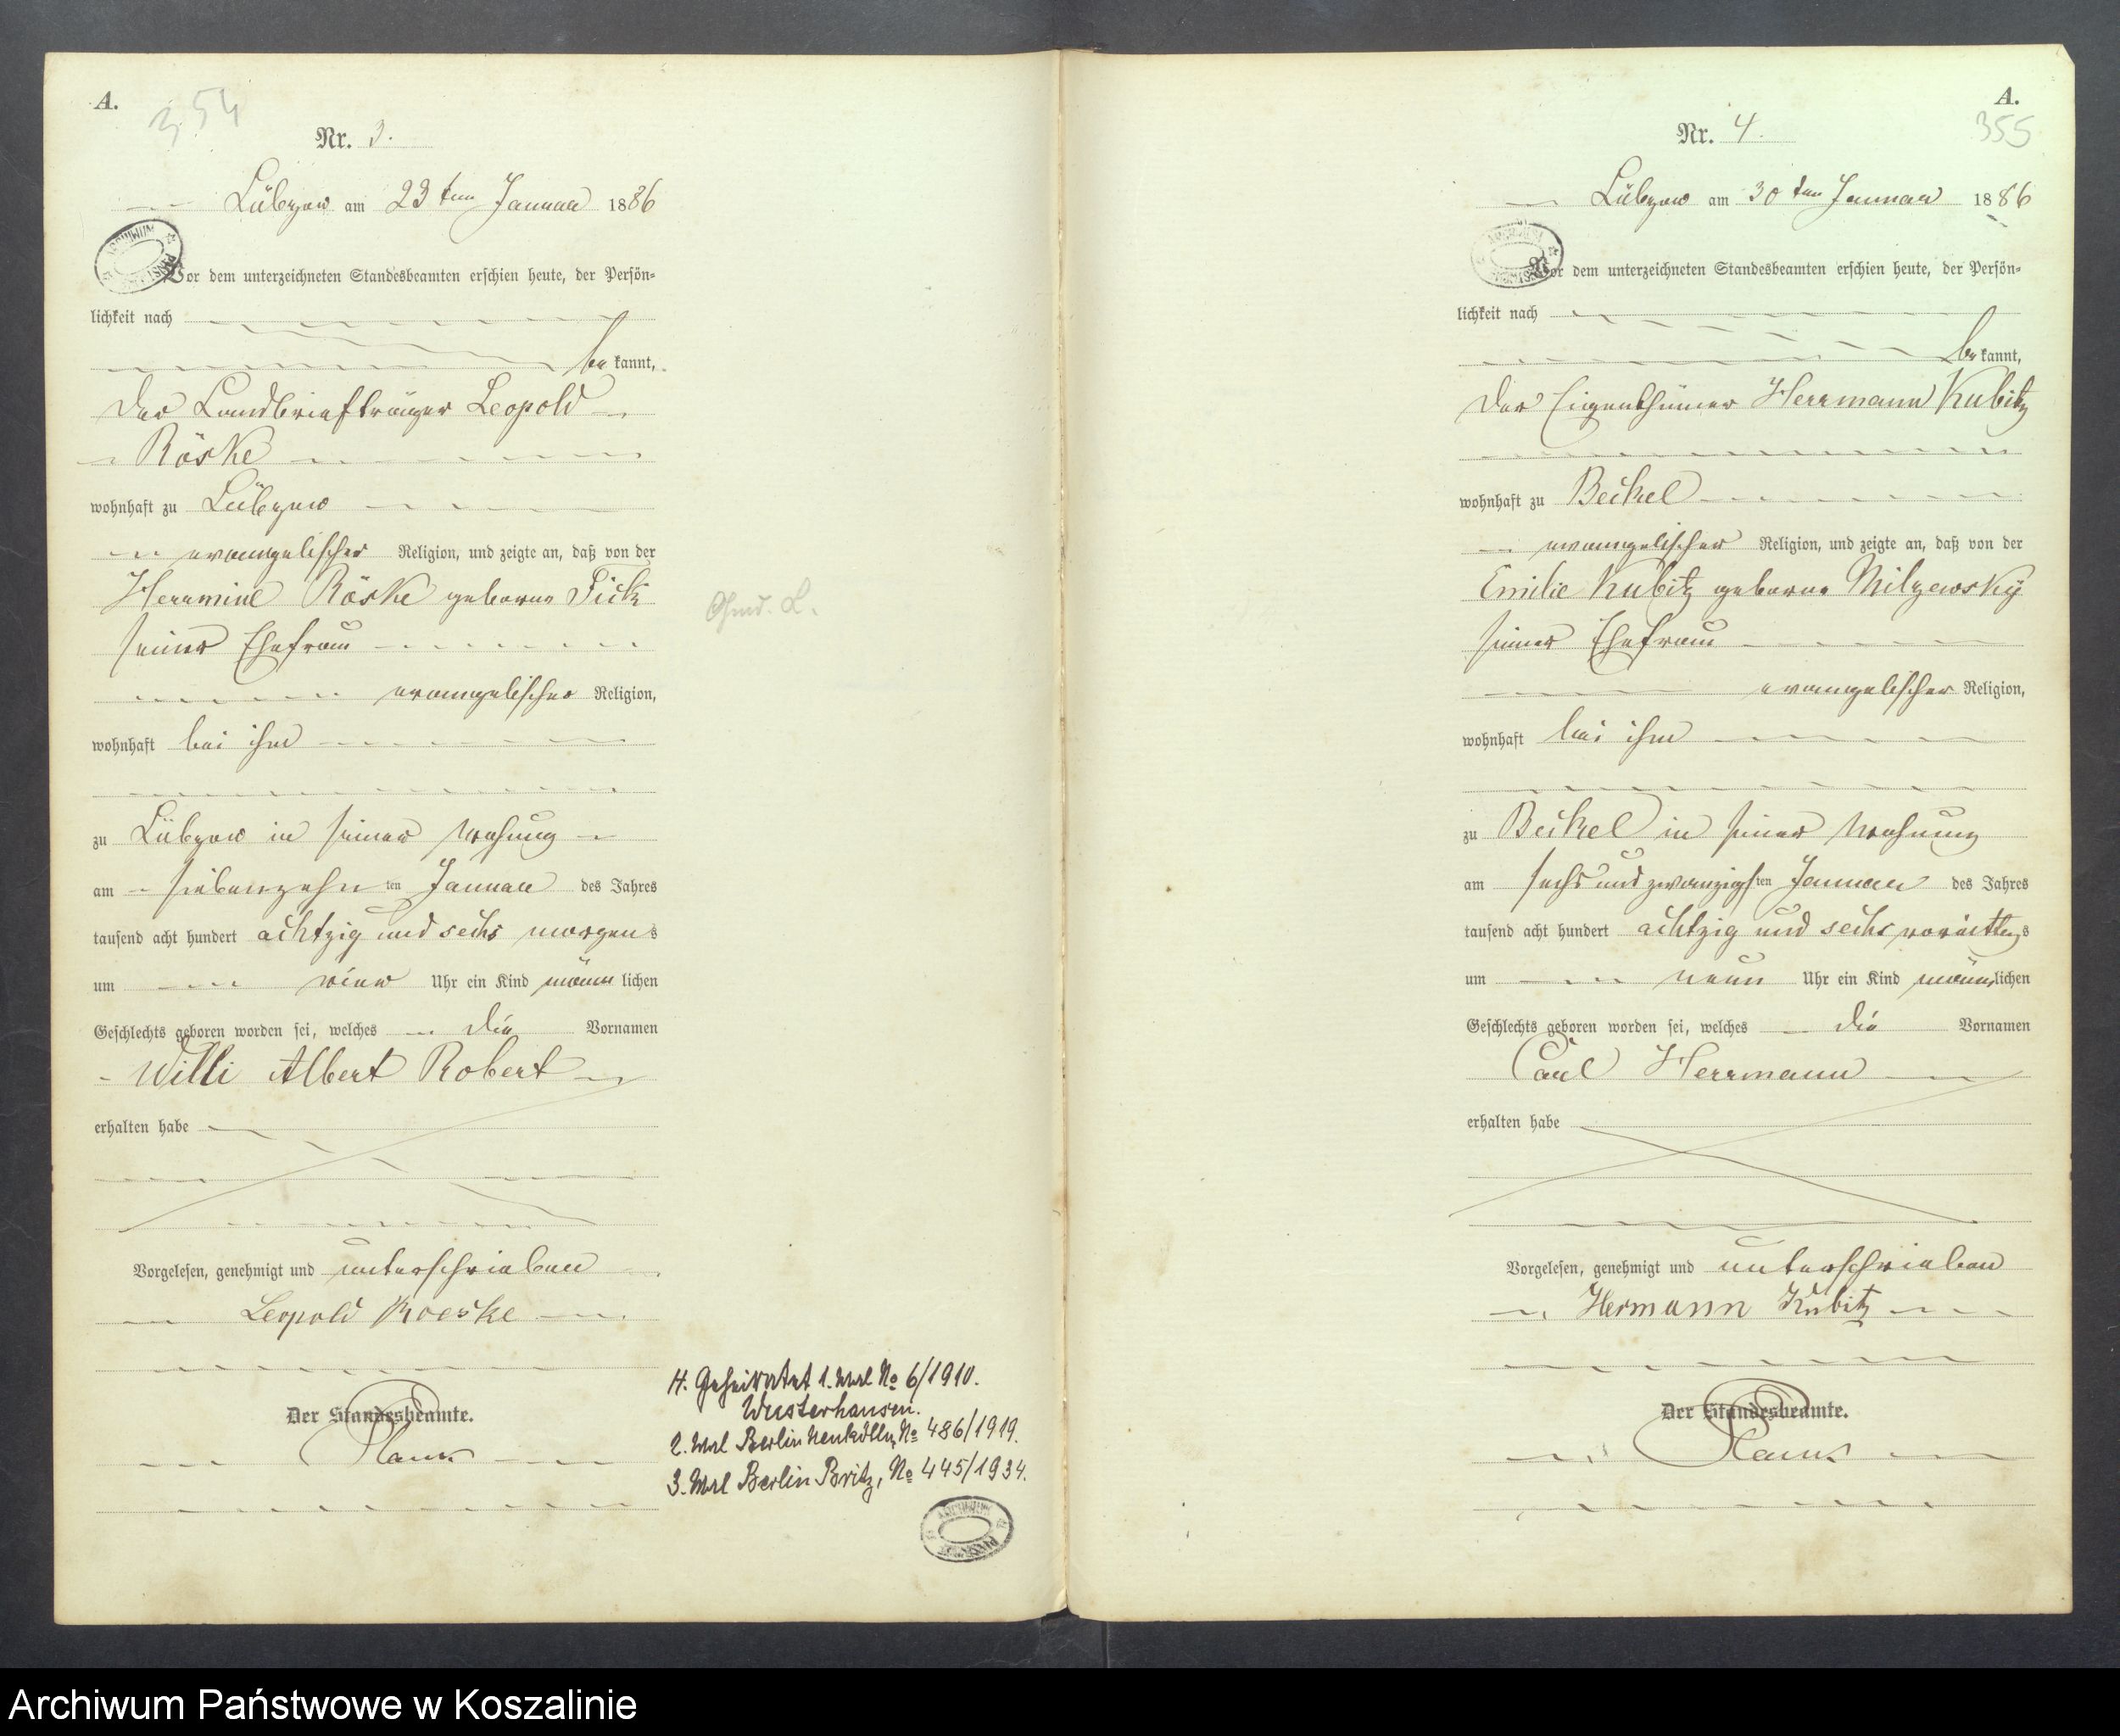 A.
354
Nr. 3.
Lübzow am 23ten Januar 1886
Vor dem unterzeichneten Standesbeamten erschien heute, der Persön=
lichkeit nach
bekannt,
der Landbriefträger Leopold
Röske
wohnhaft zu Lübzow
evangelischer Religion, und zeigte an, daß von der
Hermine Röske geborne Fick
seiner Ehefrau
evangelischer Religion,
wohnhaft bei ihm
zu Lübzow in seiner Wohnung
am siebenzehnten Januar des Jahres
tausend acht hundert achtzig und sechs morgens
um vier Uhr ein Kind männlichen
Geschlechts geboren worden sei, welches die Vornamen
Willi Albert Robert
erhalten habe
Vorgelesen, genehmigt und unterschrieben
Leopold Roeske
Der Standesbeamte.
H. Geheiratet 1. Mal No 6/1910.
Wusterhausen.
2. Mal Berlin Neukölln, No 486/1919.
3. Mal Berlin Britz, No 445/1934.
ARCHIWUM
A.
355
Nr. 4.
Lübzow am 30ten Januar 1886
Vor dem unterzeichneten Standesbeamten erschien heute, der Persön=
lichkeit nach
bekannt,
der Eigenthümer Herrmann Kubitz
wohnhaft zu Beckel
evangelischer Religion, und zeigte an, daß von der
Emilie Kubitz geborne Milzewsky
seiner Ehefrau
evangelischer Religion,
wohnhaft bei ihm
zu Beckel in seiner Wohnung
am sechs und zwanzigsten Januar des Jahres
tausend acht hundert achtzig und sechs vormittags
um neun Uhr ein Kind männlichen
Geschlechts geboren worden sei, welches die Vornamen
Paul Herrmann
erhalten habe
Vorgelesen, genehmigt und unterschrieben
Hermann Kubitz
Der Standesbeamte.
Archiwum Państwowe w Koszalinie